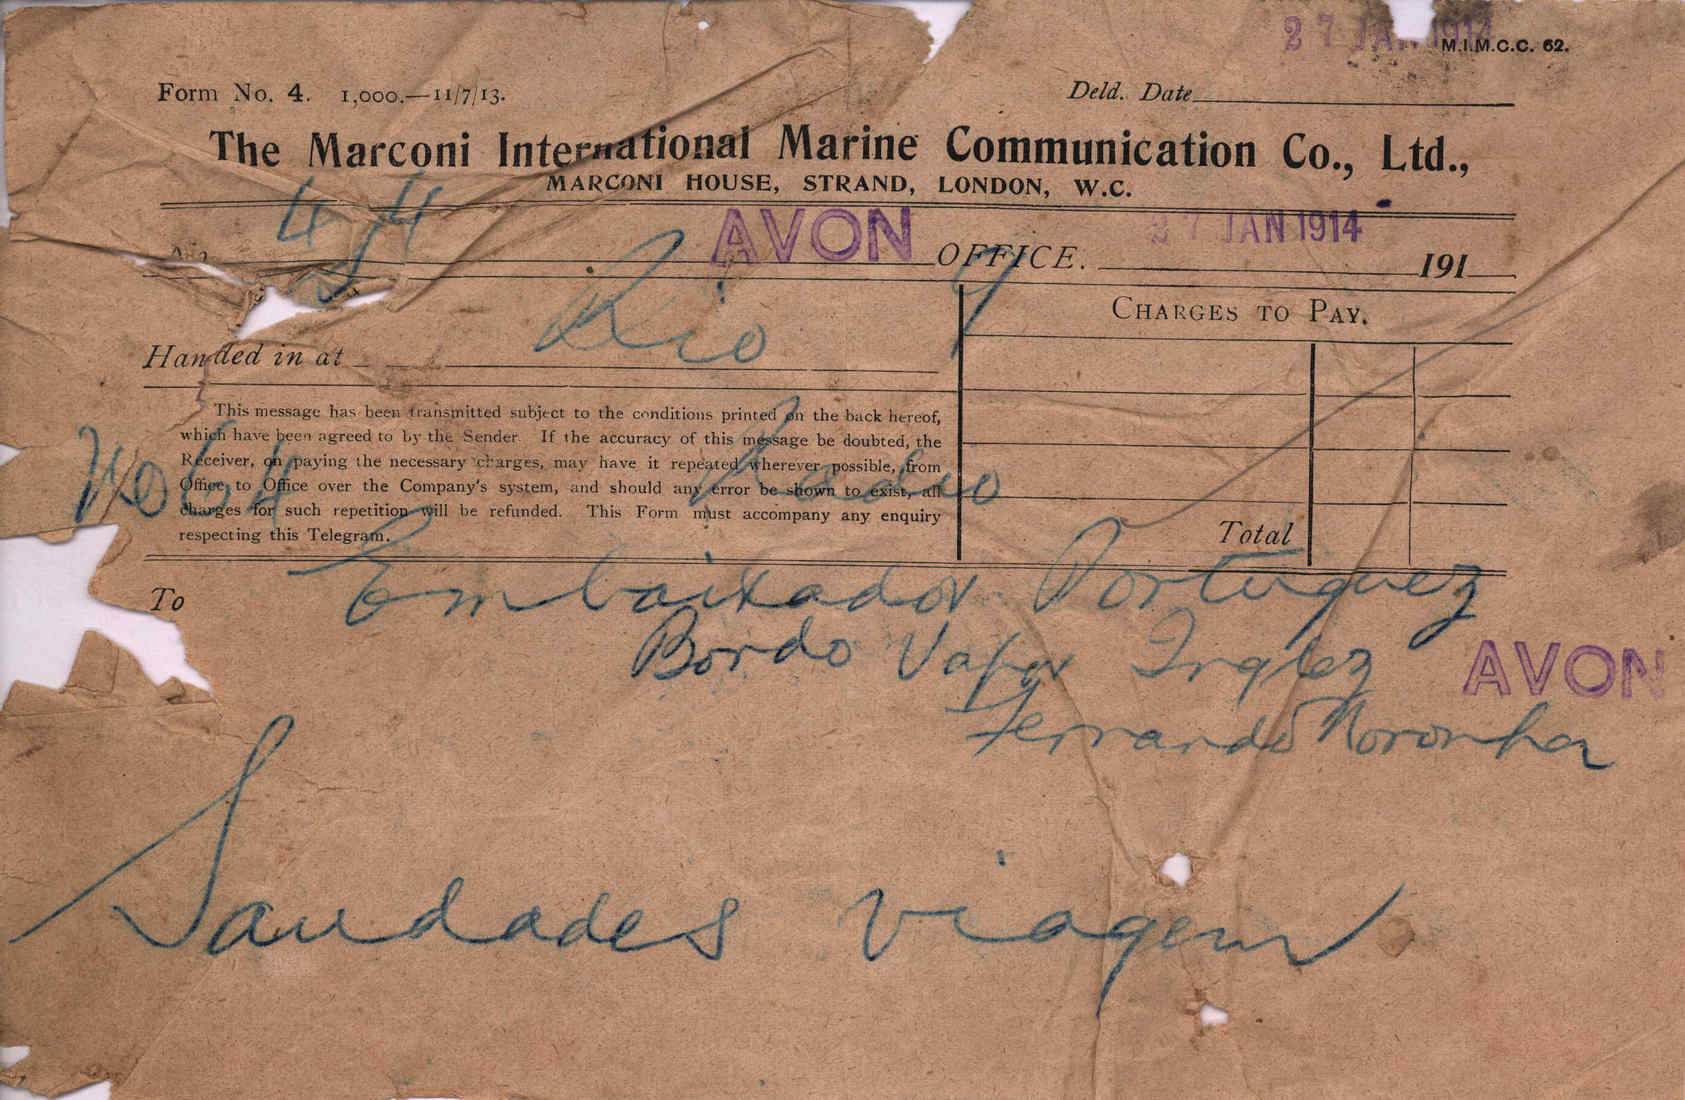 27 JAN 1914
M.I.M.C.C. 62.
Form No. 4. 1,000.—11/7/13.
Deld. Date
The Marconi International Marine Communication Co., Ltd.,
MARCONI HOUSE, STRAND, LONDON, W.C.
No. AVON OFFICE. 27 JAN 1914 191
Handed in at Rio
CHARGES TO PAY.
This message has been transmitted subject to the conditions printed on the back hereof,
which have been agreed to by the Sender. If the accuracy of this message be doubted, the
Receiver, on paying the necessary charges, may have it repeated wherever possible, from
Office to Office over the Company's system, and should any error be shown to exist, all
charges for such repetition will be refunded. This Form must accompany any enquiry
respecting this Telegram.
Radio
Total
To Embaixador Portuguez
Bordo Vapor Inglez
AVON
Fernando Noronha
Saudades viagem